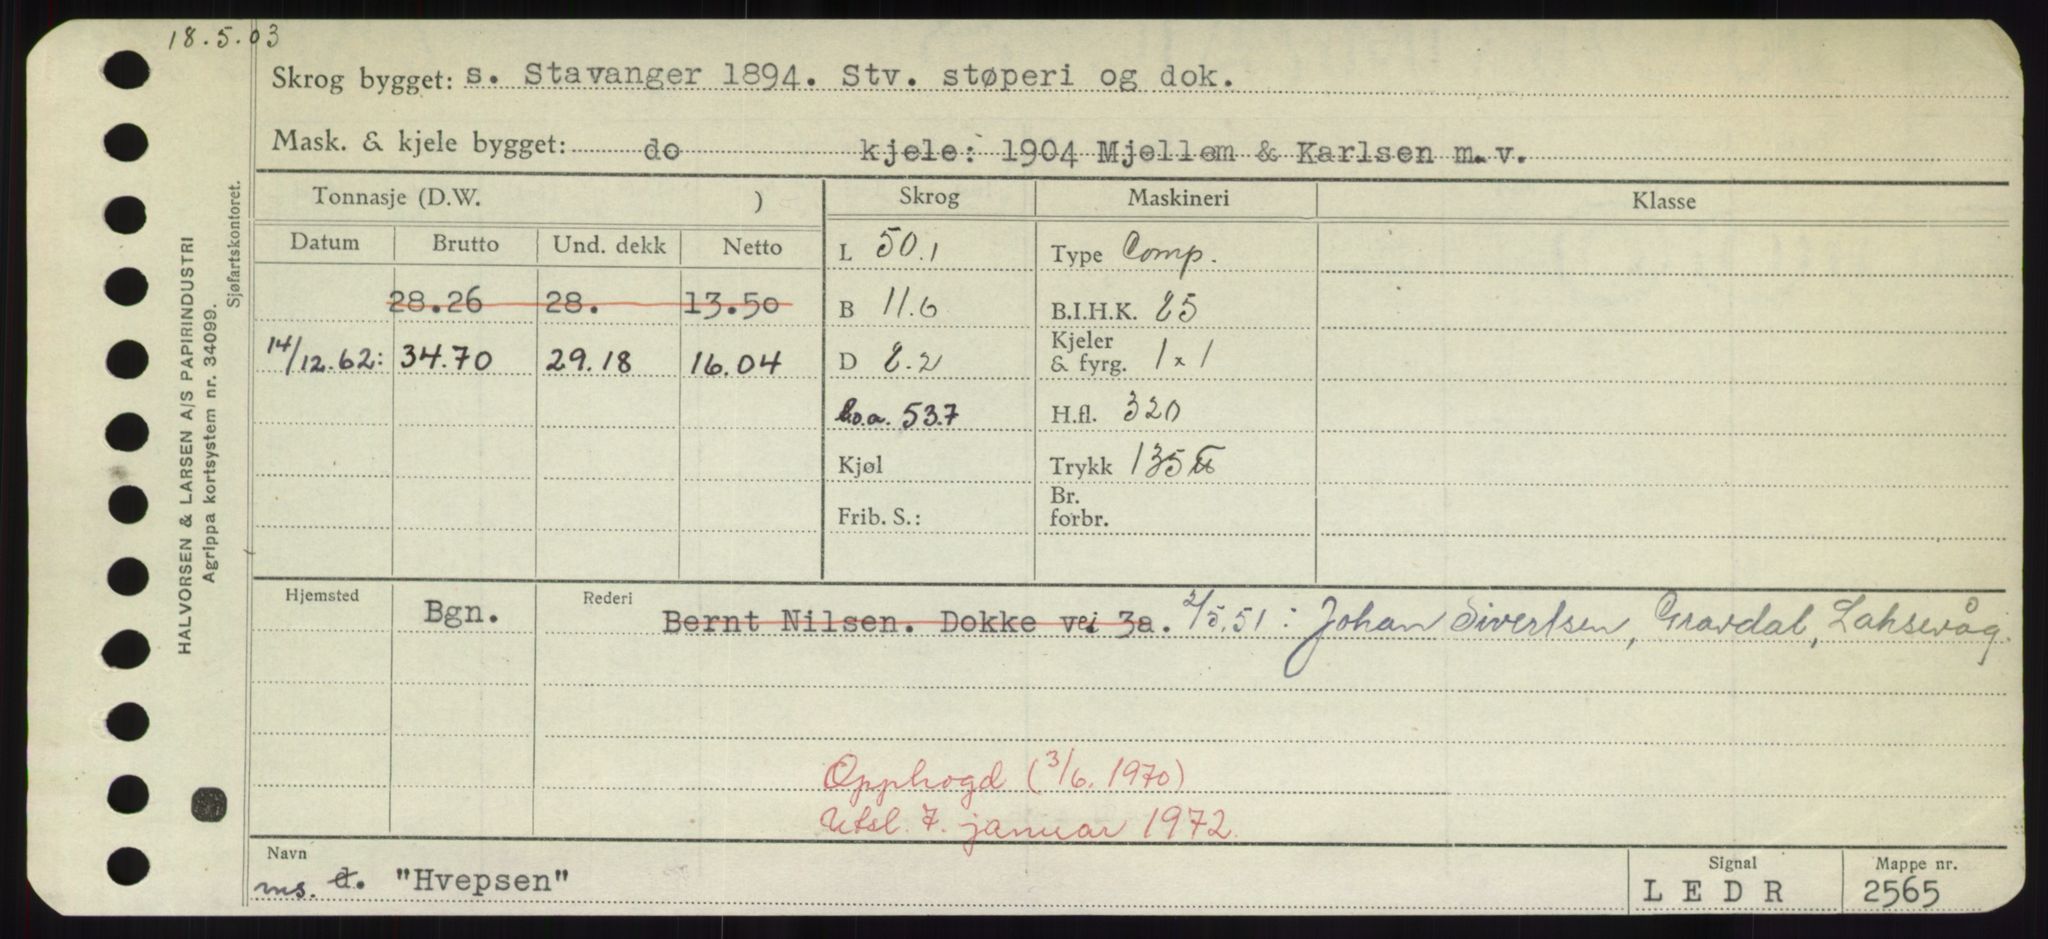 18.5.03
Skrog bygget: s. Stavanger 1894. Stv. støperi og dok.
Mask. & kjele bygget: do kjele: 1904 Mjellem & Karlsen m.v.
Tonnasje (D.W. ) Skrog Maskineri Klasse
Datum Brutto Und. dekk Netto L 50.1 Type Comp.
28.26 28. 13.50 B 11.6 B.I.H.K. 25
14/12.62: 34.70 29.18 16.04 D 8.2 Kjeler & fyrg. 1 x 1
l.o.a. 53.7 H.fl. 320
Kjøl Trykk 135 ℔
Frib. S.: Br. forbr.
Hjemsted Bgn. Rederi Bernt Nilsen. Dokke vei 3a. 2/5.51: Johan Sivertsen, Gravdal, Laksevåg.
Opphogd (3/6. 1970)
Utsl. 7. januar 1972.
Navn Signal Mappe nr.
ms. d. "Hvepsen" LEDR 2565
HALVORSEN & LARSEN A/S PAPIRINDUSTRI
Agrippa kortsystem nr. 34099.
Sjøfartskontoret.